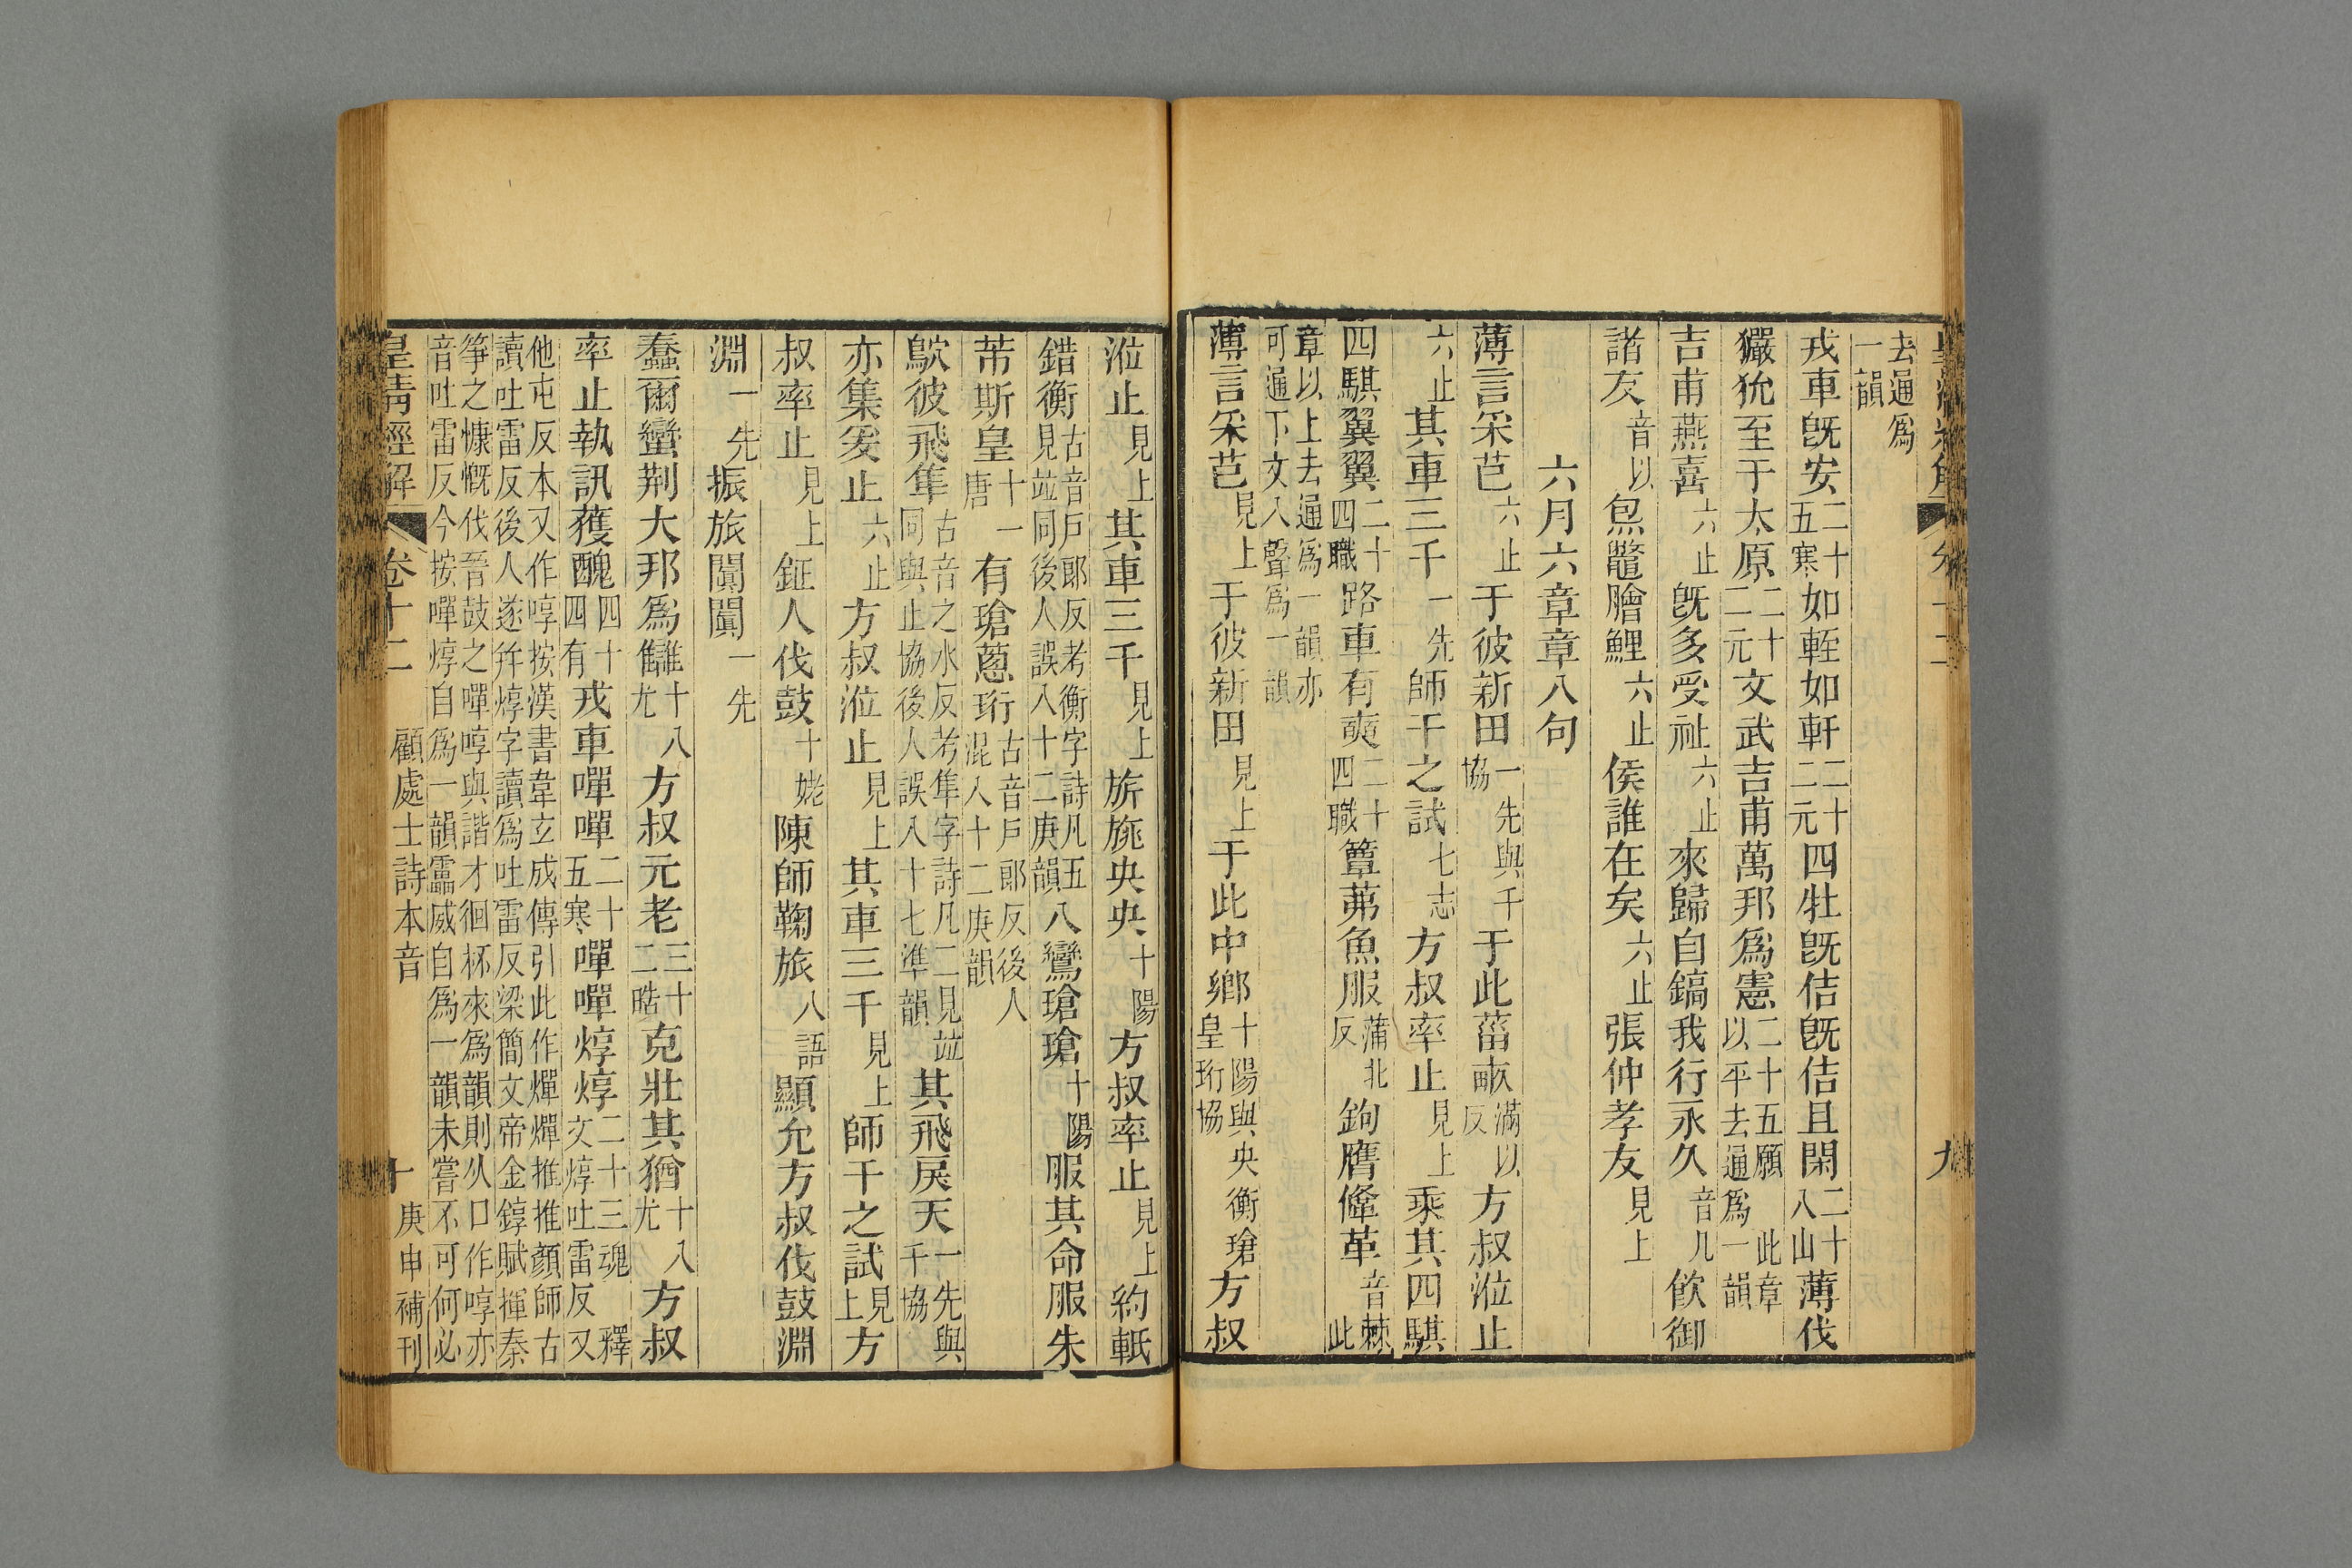 去通爲一韻
戎車旣安二十五寒如輊如軒二十二元四牡旣佶旣佶且閑二十八山薄伐
玁狁至于太原二十二元文武吉甫萬邦爲憲二十五願此章以平去通爲一韻
吉甫燕喜六止旣多受祉六止來歸自鎬我行永久音几飮御
諸友音以炰鼈膾鯉六止侯誰在矣六止張仲孝友見上
六月六章章八句
薄言采芑六止于彼新田一先與千協于此菑畝滿以反方叔涖止
六止其車三千一先師干之試七志方叔率止見上乘其四騏
四騏翼翼二十四職路車有奭二十四職簟茀魚服蒲北反鉤膺鞗革音棘此
章以上去通爲一韻亦可通下文入聲爲一韻
薄言采芑見上于彼新田見上于此中鄉十陽與央衡瑲皇珩協方叔
涖止見上其車三千見上旂旐央央十陽方叔率止見上約軝
錯衡古音戶郎反考衡字詩凡五見竝同後人誤入十二庚韻八鸞瑲瑲十陽服其命服朱
芾斯皇十一唐有瑲蔥珩古音戶郎反後人混入十二庚韻
鴥彼飛隼古音之水反考隼字詩凡二見竝同與止協後人誤入十七準韻其飛戾天一先與千協
亦集爰止六止方叔涖止見上其車三千見上師干之試見上方
叔率止見上鉦人伐鼓十姥陳師鞠旅八語顯允方叔伐鼓淵
淵一先振旅闐闐一先
蠢爾蠻荆大邦爲讎十八尤方叔元老三十二晧克壯其猶十八尤方叔
率止執訊獲醜四十四有戎車嘽嘽二十五寒嘽嘽焞焞二十三魂釋文焞吐雷反又
他屯反本又作啍按漢書韋玄成傳引此作燀燀推推顏師古讀吐雷反後人遂幷焞字讀爲吐雷反梁簡文帝金錞賦揮秦
箏之慷慨伐晉鼓之嘽啍與諧才徊杯來爲韻則从口作啍亦音吐雷反今按嘽焞自爲一韻靁威自爲一韻未嘗不可何必
皇淸經解 卷十二 顧處士詩本音 十 庚申補刊